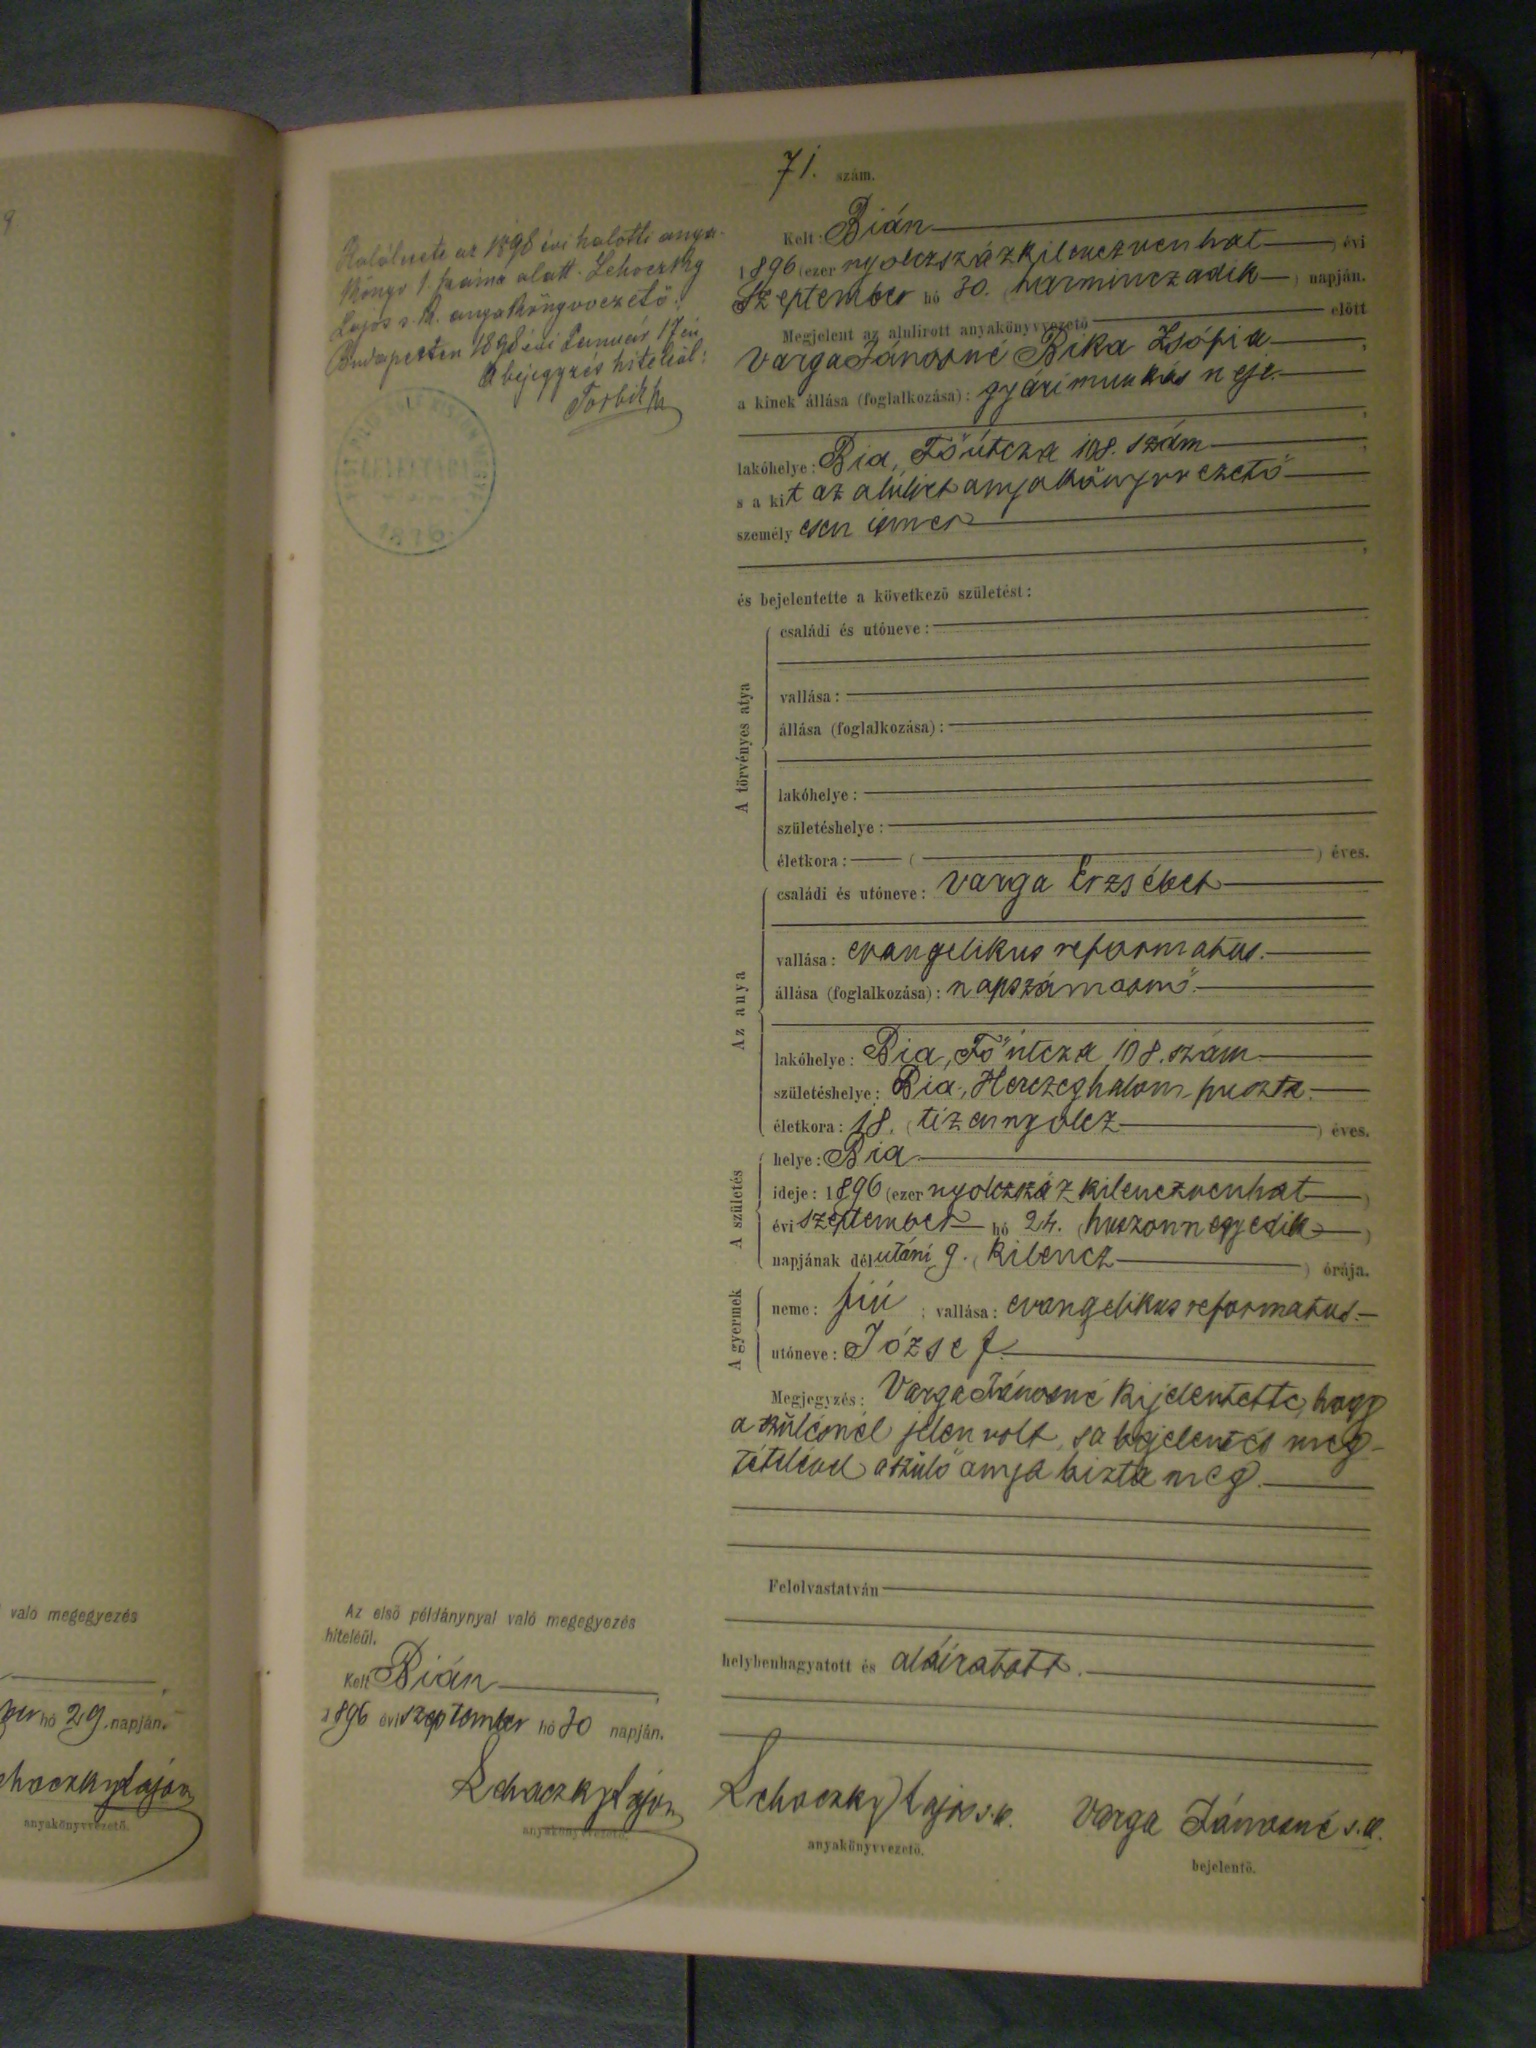 71. szám.
Halálesete az 1898 évi halotti anya-
könyv 1 száma alatt. Lehoczky
Lajos s. k. anyakönyvvezető.
Budapesten 1898 évi Január 17 én
A bejegyzés hiteléül:
1896
Kelt: Bián
1896 (ezer nyolczszázkilenczvenhat) évi
Szeptember hó 30. (harminczadik) napján.
Megjelent az alulirott anyakönyvvezető előtt
Varga Jánosné Bika Zsófia,
a kinek állása (foglalkozása): gyári munkás neje.
,
lakóhelye: Bia, Főútcza 108. szám,
s a kit az alúlirt anyakönyvvezető
személyesen ismer
,
és bejelentette a következő születést:
A törvényes atya
családi és utóneve:
vallása:
állása (foglalkozása):
lakóhelye:
születéshelye:
életkora: ( ) éves.
Az anya
családi és utóneve: Varga Erzsébet
vallása: evangelikus reformatus.
állása (foglalkozása): napszámosnő.
lakóhelye: Bia, Főútcza 108. szám
születéshelye: Bia, Herczeghalom puszta.
életkora: 18. (tizennyolcz) éves.
A születés
helye: Bia
ideje: 1896 (ezer nyolczszázkilenczvenhat)
évi szeptember hó 24. (huszonnegyedik)
napjának délutáni 9. (kilencz) órája.
A gyermek
neme: fiú; vallása: evangelikus reformatus.
utóneve: József.
Megjegyzés: Varga Jánosné kijelentette, hogy
a szülésnél jelen volt, s a bejelentés meg-
tételével a szülő anya bizta meg.
Felolvastatván
helybenhagyatott és aláiratott.
Lehoczky Lajos s. k.
anyakönyvvezető.
Varga Jánosné s. k.
bejelentő.
Az első példánynyal való megegyezés
hiteléül.
Kelt Bián,
1896 évi szeptember hó 30 napján.
Lehoczky Lajos
anyakönyvvezető.
való megegyezés
,
hó 29. napján.
Lajos
anyakönyvvezető.